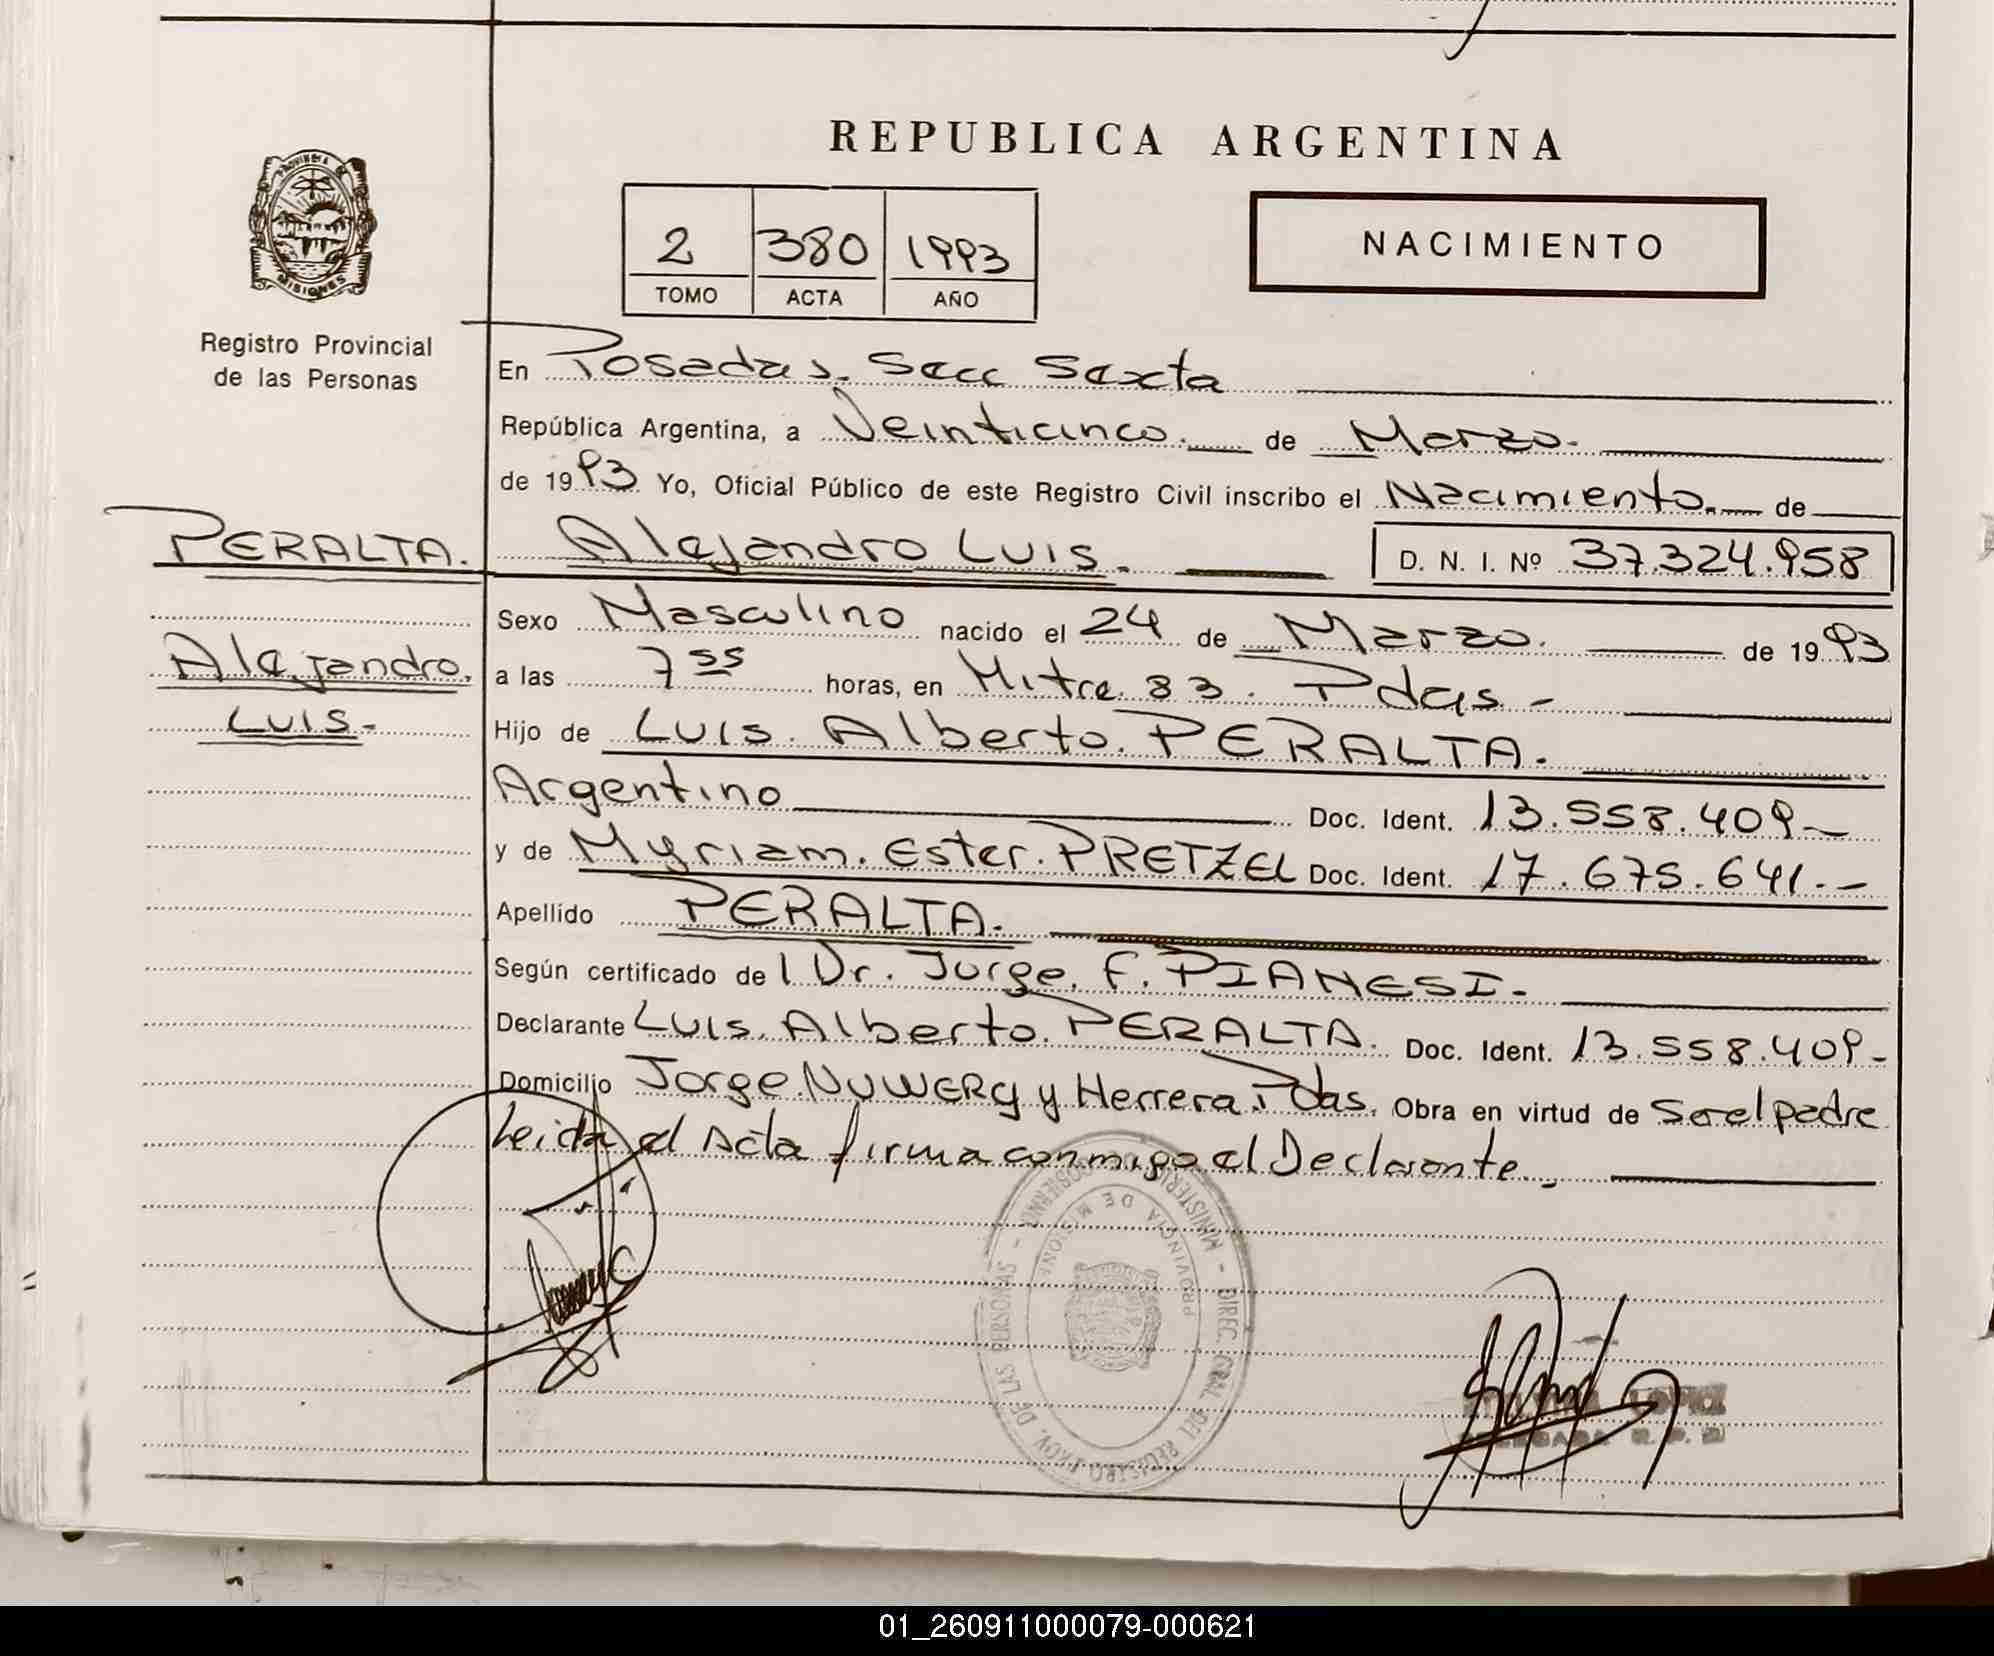 REPUBLICA ARGENTINA
PROVINCIA DE
MISIONES
Registro Provincial
de las Personas
2 380 1993
TOMO ACTA AÑO
NACIMIENTO
En Posadas. Secc Sexta
República Argentina, a Veinticinco. de Marzo.
de 1993 Yo, Oficial Público de este Registro Civil inscribo el Nacimiento. de
PERALTA. Alejandro LUIS. D. N. I. Nº 37.324.958
Sexo Masculino nacido el 24 de Marzo. de 1993
Alejandro.
a las 7 55 horas, en Mitre. 83. Pdas. -
LUIS.-
Hijo de LUIS. Alberto. PERALTA.
Argentino Doc. Ident. 13.558.409-
y de Myriam. Ester. PRETZEL Doc. Ident. 17.675.641.-
Apellido PERALTA.
Según certificado de l Dr. Jorge. F. PIANESI.
Declarante LUIS. Alberto. PERALTA. Doc. Ident. 13.558.409-
Domicilio Jorge. y Herrera. Pdas. Obra en virtud de Ser el padre
Leida el Acta firma conmigo el Declarante.
MINISTERIO DE GOBIERNO - DIREC. GRAL. DEL REGISTRO PROV. DE LAS PERSONAS -
PROVINCIA DE MISIONES
LOPEZ
DELEGADA R. P.
01_260911000079-000621